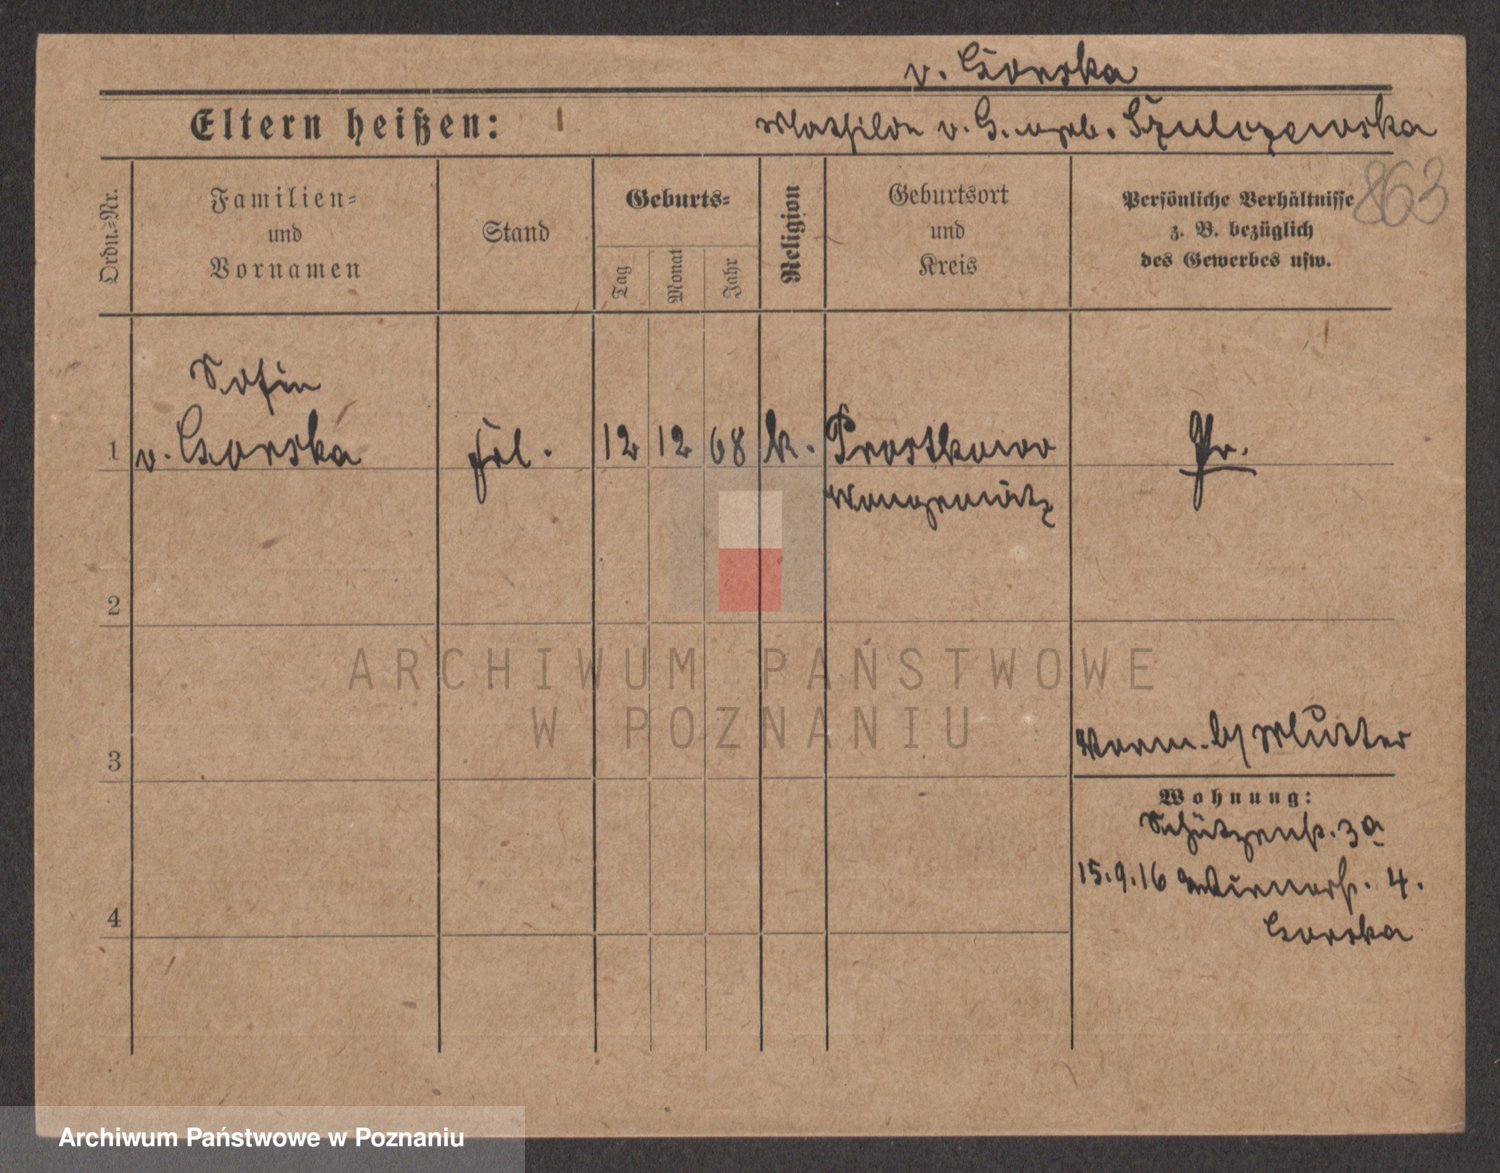 v. Gorska
Eltern heißen:
Mathilde v. G. geb. Szulczewska
863
Ordn.-Nr.
Familien-
und
Vornamen
Stand
Geburts-
Tag
Monat
Jahr
Religion
Geburtsort
und
Kreis
Persönliche Verhältnisse
z. B. bezüglich
des Gewerbes usw.
Sofie
1 v. Gorska frl. 12 12 68 k. Prostkowo Pr.
Wongrowitz
2
3
Vorm. b/ Mutter
Wohnung:
Schützenstr. 3a
15.9.16 4.
4
Gorska
ARCHIWUM PAŃSTWOWE
W POZNANIU
Archiwum Państwowe w Poznaniu